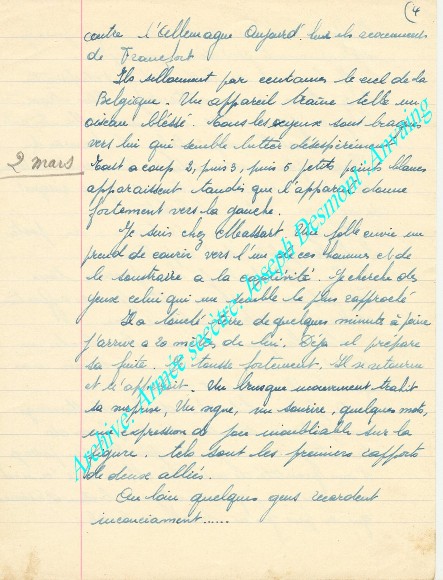 (4
contre l'Allemagne Aujourd'hui ils reviennent
de Francfort
Ils sillonnent par centaines le ciel de la
Belgique. Un appareil traine telle un
oiseau blessé. Tous les yeux sont
vers lui qui semble lutter désespérément
2 mars
Tout a coup 2, puis 3, puis 5 petits points blancs
apparaissent tandis que l'appareil donne
fortement vers la gauche.
Je suis chez Massart. Une folle envie me
prend de courir vers l'un de ces hommes et de
le soustraire a la captivité. Je cherche des
yeux celui qui me semble le plus rapproché
La de quelques minute à peine
j'arrive a 20 mètres de lui. Déja il prépare
sa fuite. Je tousse fortement. Il se retourne
et m'aperçoit. Un brusque mouvement trahit
sa surprise, Un signe, un sourire, quelques mots,
une expression de joie inoubliable sur la
figure. tels sont les premiers rapports
de deux alliés.
Au loin quelques gens
......
Archive: Armée secrète: Joseph Desmont Antoing